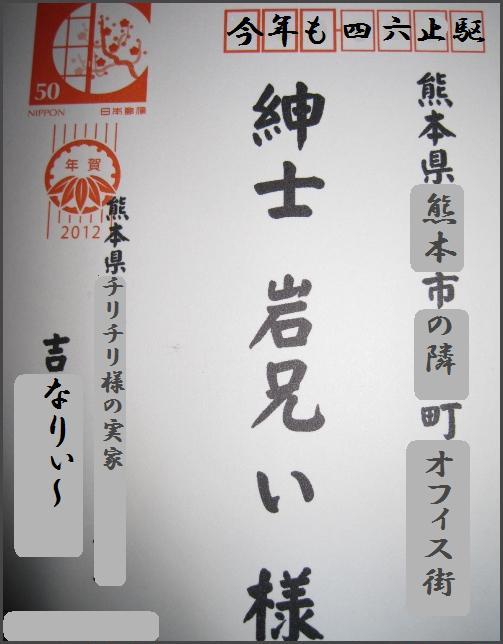 今年も四六止駆
熊本県熊本市の隣町オフィス街
紳士 岩兄ぃ 様
熊本県チリチリ様の実家
吉なりぃ〜
50
NIPPON 日本郵便
年賀
2012